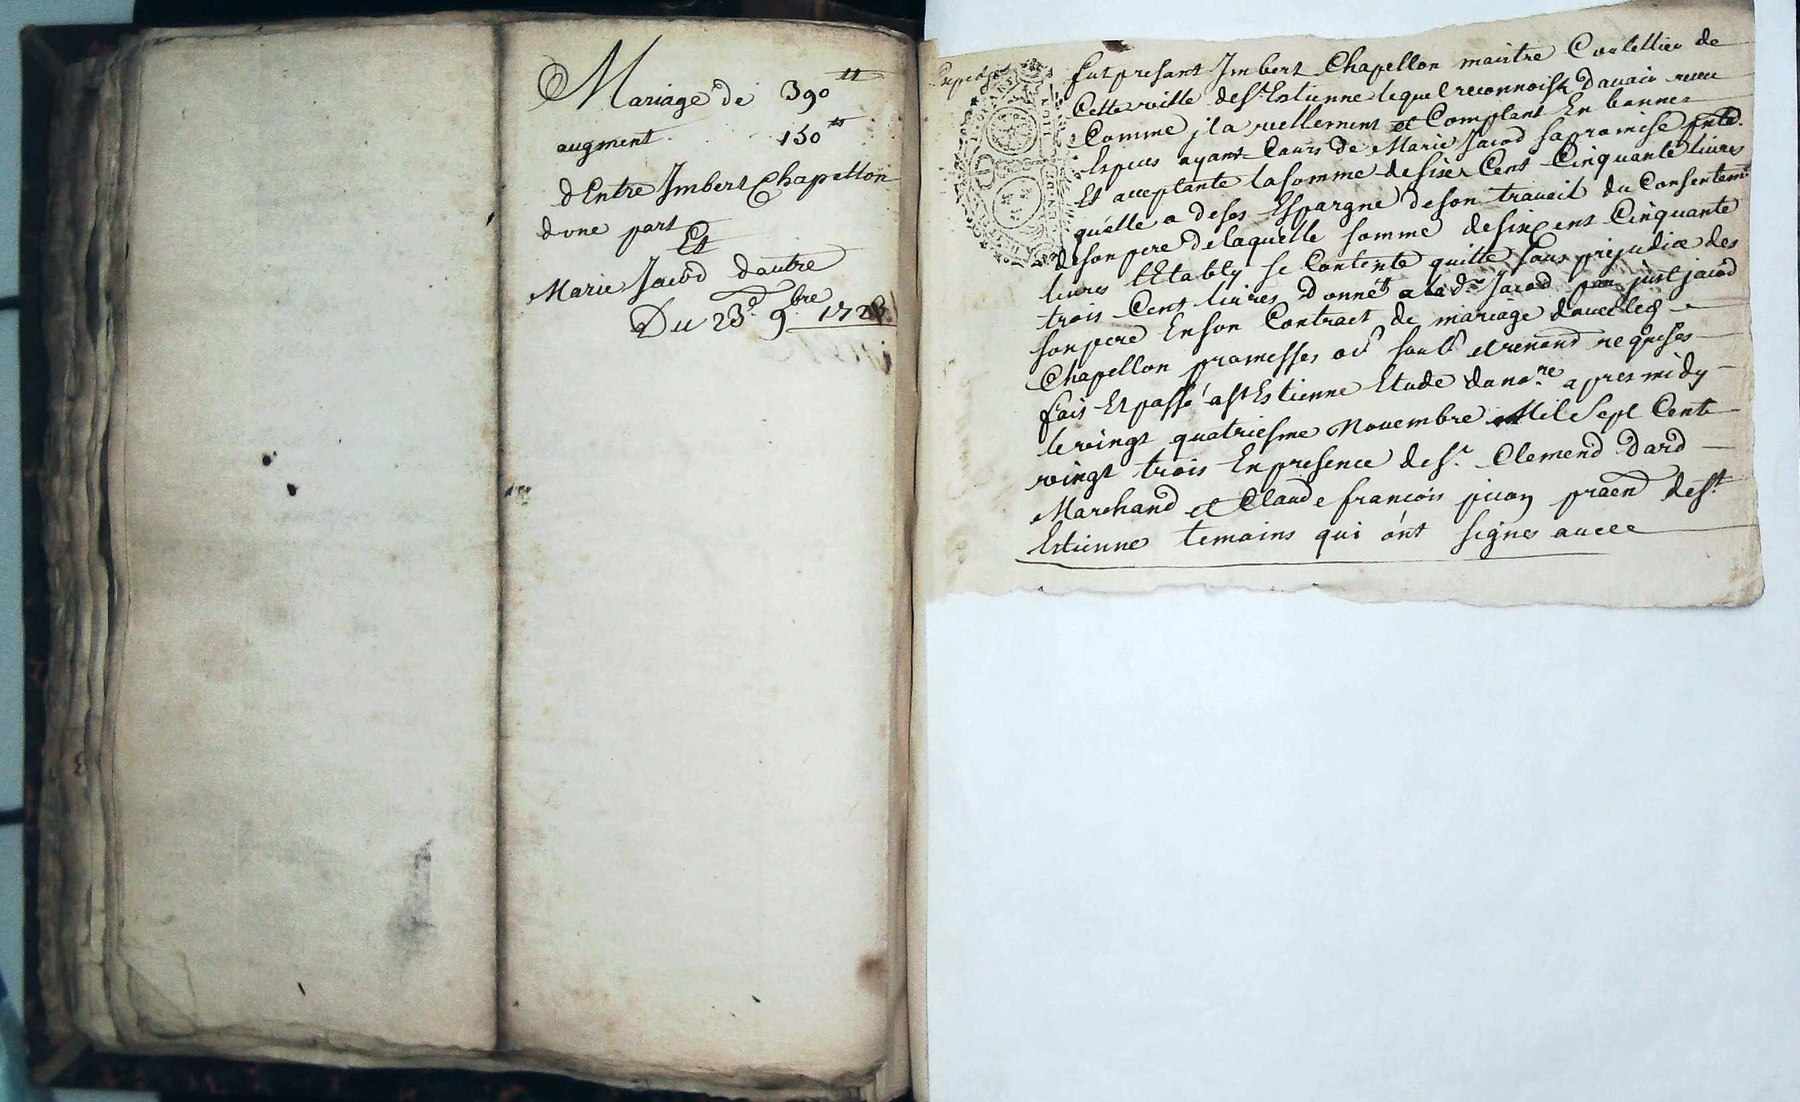 Mariage de 390 ₶
augment. 130 ₶
d'Entre Jmbert Chapellon
d'une part
Et
Marie Jacod dautre
Du 23.e 9.bre 1723
Expedié
fut present Jmbert Chapellon maitre Coutellier de
Cette ville de st Estienne lequel reconnoist d'avoir receu
Comme jl a reellement et Comptant En bonnes
Especes ayant Cours de Marie Jacod sa promise pnte
Et acceptante la somme de sixs Cent Cinquante livres
qu'elle a de ses Espargne de son travail du Consentemt
de son pere de laquelle somme de six cent Cinquante
livres letably se Contente quitte sans prejudice des
trois Cent livres donnet a la de Jacod par just jacod
son pere En son Contract de mariage d'avec led
Chapellon promesses obt soubt et renond requises
fait Et passé a st Estienne Etude du nore apres midy
le vingt quatriesme Novembre Mil Sept Cent
vingt trois En presence de sr Clemend Dard
Marchand et Claude francois picon praend de st
Estienne temoins qui ont signes avec